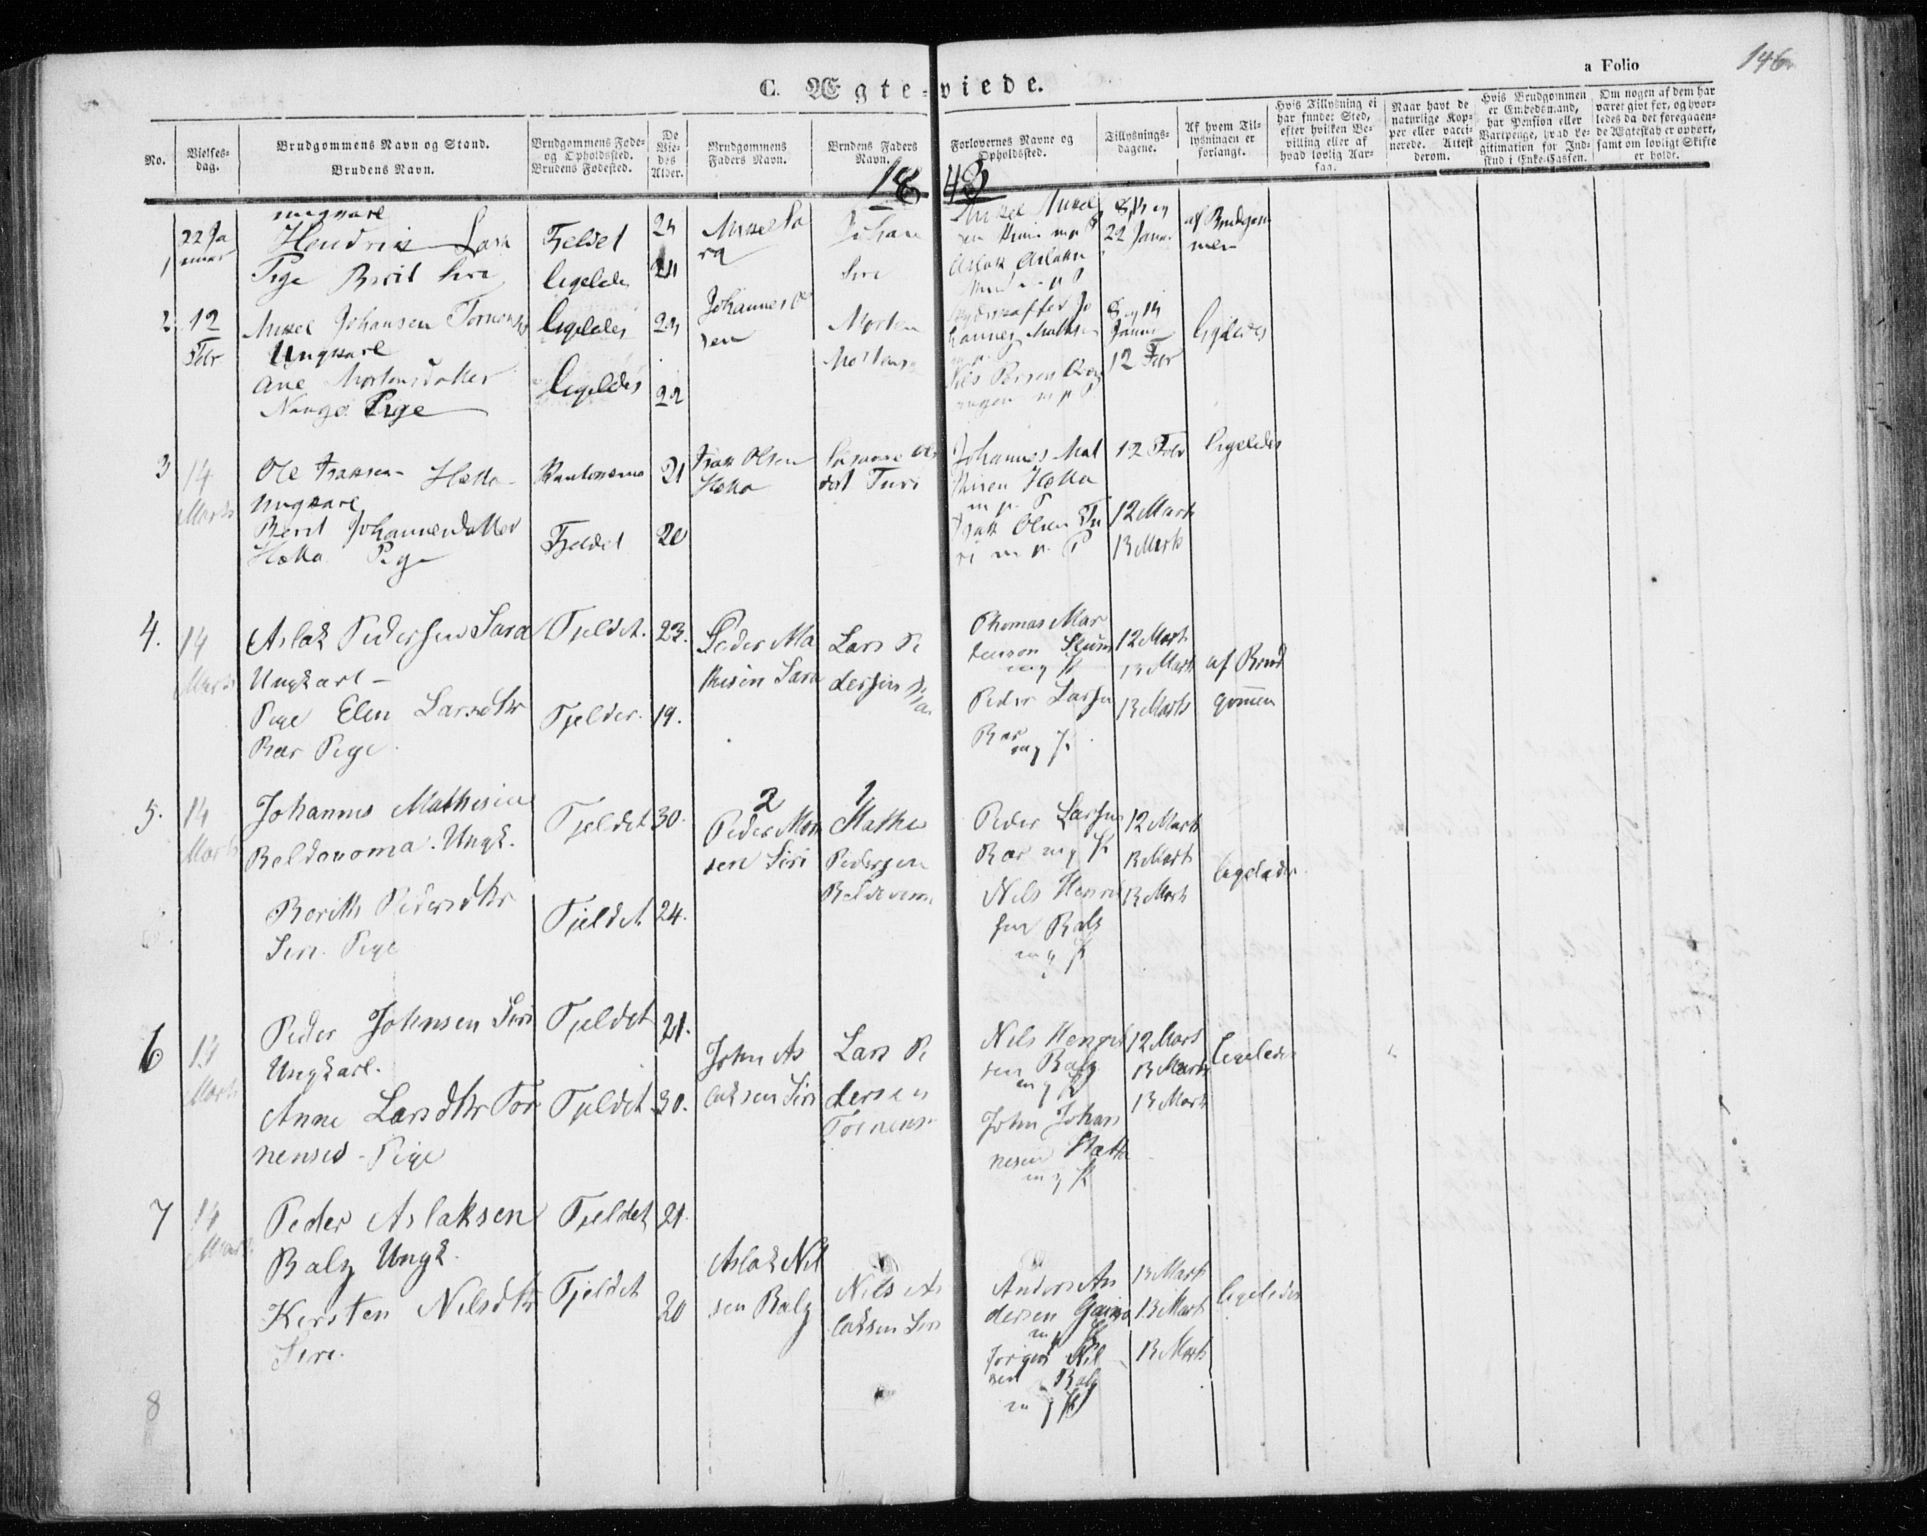 146
a Folio
C. Ægte-viede.
No.
Vielses-
dag.
Brudgommens Navn og Stand.
Brudens Navn.
Brudgommens Føde-
og Opholdssted.
Brudens Fødested.
De
Vie-
des
Alder.
Brudgommens
Faders Navn.
Brudens Faders
Navn.
Forlovernes Navne og
Opholdssted.
Tillysnings-
dagene.
Af hvem Til-
lysningen er
forlangt.
Hvis Tillysning ei
har fundet Sted,
efter hvilken Be-
villing eller af
hvad lovlig Aar-
saa.
Naar havt de
naturlige Kop-
per eller vacci-
nerede. Attest
derom.
Hvis Brudgommen
er Embedsmand,
har Pension eller
Vartpenge, hvad Le-
gitimation for Ind-
skud i Enke-Cassen.
Om nogen af dem har
været givt før, og hvor-
ledes da det foregaaen-
de Ægteskab er ophørt,
samt om lovligt Skifte
er holdt.
1848
1
22 Ja
nuar
ungkarl
Hendrik Sara
Pige Berit Siri
Fjeldet
ligeledes
24
24
Mikkel Sa
ra
Johan
Siri
Mikkel Mikkel
sen
Aslak Aslaks
8, 14 og
22 Januar
af Brudgom
men
2
12
Febr
Mikkel Johansen Tornensis
Ungkarl
Ane Mortensdatter
Nango Pige
ligeledes
ligeledes
24
22
Johannes
sen
Morten
Mortens
hannes Mathisen
m. p.
Nils Persen
m p P
8 og 14
Januar
12 Febr
ligeledes
3
14
Marts
Ole Isaksen Hætta
Ungkarl
Berit Johannesdatter
Hætta Pige
Kautokeino
Fjeldet
21
20
Isak Olsen
Hætta
Johannes Ol
Turi
Johannes Mat
thisen Hætta
m. p. P
Isak Olsen Tu
ri m p. P
12 Febr
12 Marts
13 Marts
ligeledes
4.
14
Marts
Aslak Pedersen Sara
Ungkarl
Pige Elen Larsdtr
Bær Pige.
Fjeldet.
Fjeldet.
23.
19.
Peder Ma
thisen Sara
Lars Pe
dersen Bær
Thomas Mar
tenson
m p
Peder Larsen
Bær
m p
12 Marts
13 Marts
13 Marts
af Brud
gommen
5.
14
Marts
Johannes Mathisen
Beldovoma. Ungk.
Berith Pedersdtr
Siri. Pige
Fjeldet
Fjeldet
30.
24.
2
Peder
sen Siri
1
Mathis
Pedersen
Beldovoma
Peder Larsen
Bær m p
Nils Henrik
sen Balz
m p
12 Marts
13 Marts
13 Marts
ligeledes
6
13
Marts
Peder Johnsen Siri
Ungkarl.
Anne Larsdtr Tor
nensis - Pige
Fjeldet
Fjeldet
21.
30.
John As
laksen Siri
Lars Pe
dersen
Tornensis
Nils Henrik
sen Balz
m p
John Johan
nesen Hætta
m p
12 Mart
13 Marts
13 Marts
ligeledes
7
14
Marts
Peder Aslaksen
Balz Ungk.
Kersten Nilsdtr
Siri.
Fjeldet
Fjeldet
21.
20
Aslak Nil
sen Balz
Nils As
laksen Siri
Anders An
dersen Gaino
m p
Jørgen Nil
sen Balz
m p
13 Marts
13 Marts
13 Marts
ligeledes
8